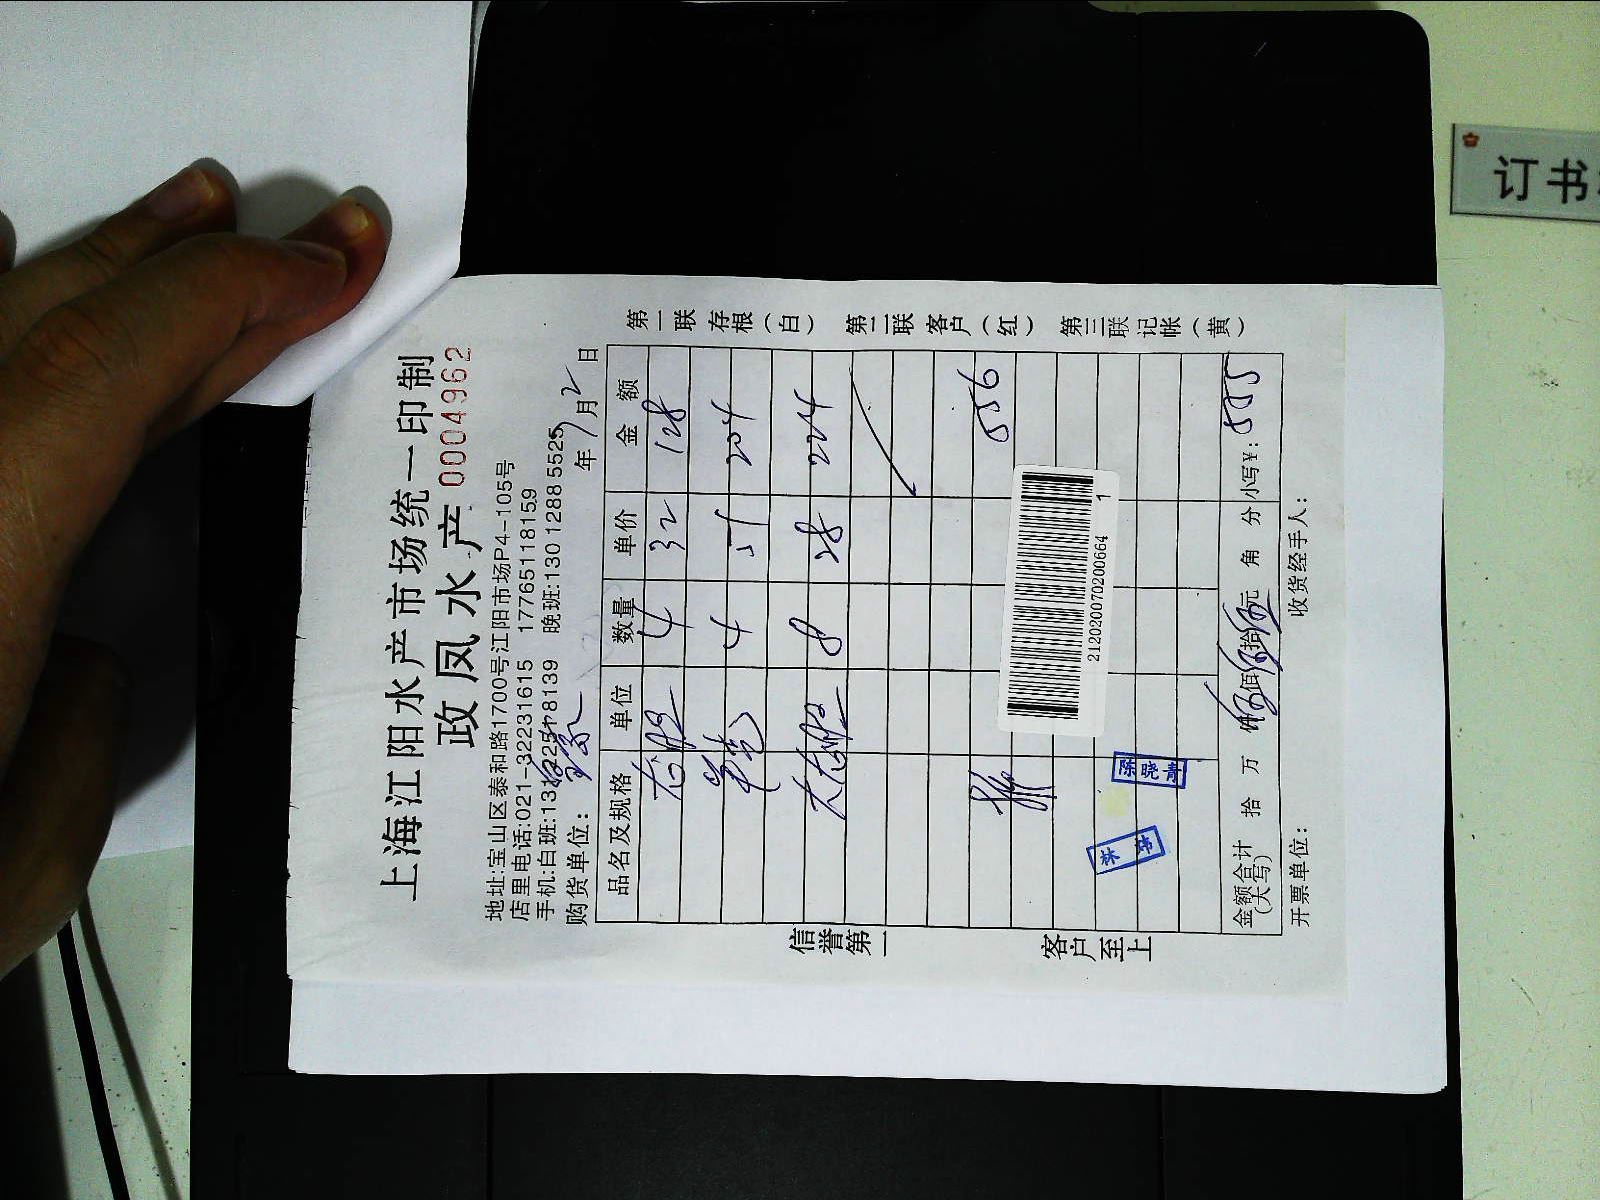 上海江阳水产市场统一印制
政凤水产 0004962
地址:宝山区泰和路1700号江阳市场P4-105号
店里电话:021-32231615 17765118159
手机:白班: 晚班:130 1288 5525
购货单位: 年 7月2日
品名及规格 单位 数量 单价 金额
4 32 128
4 51 204
8 28 224
556
2120200702200664 1
陈晓青
林
金额合计(大写) 拾 万 仟 佰 拾 元 角 分 小写¥: 555
开票单位: 收货经手人:
信誉第一
客户至上
第一联 存根(白) 第二联 客户(红) 第三联 记帐(黄)
订书